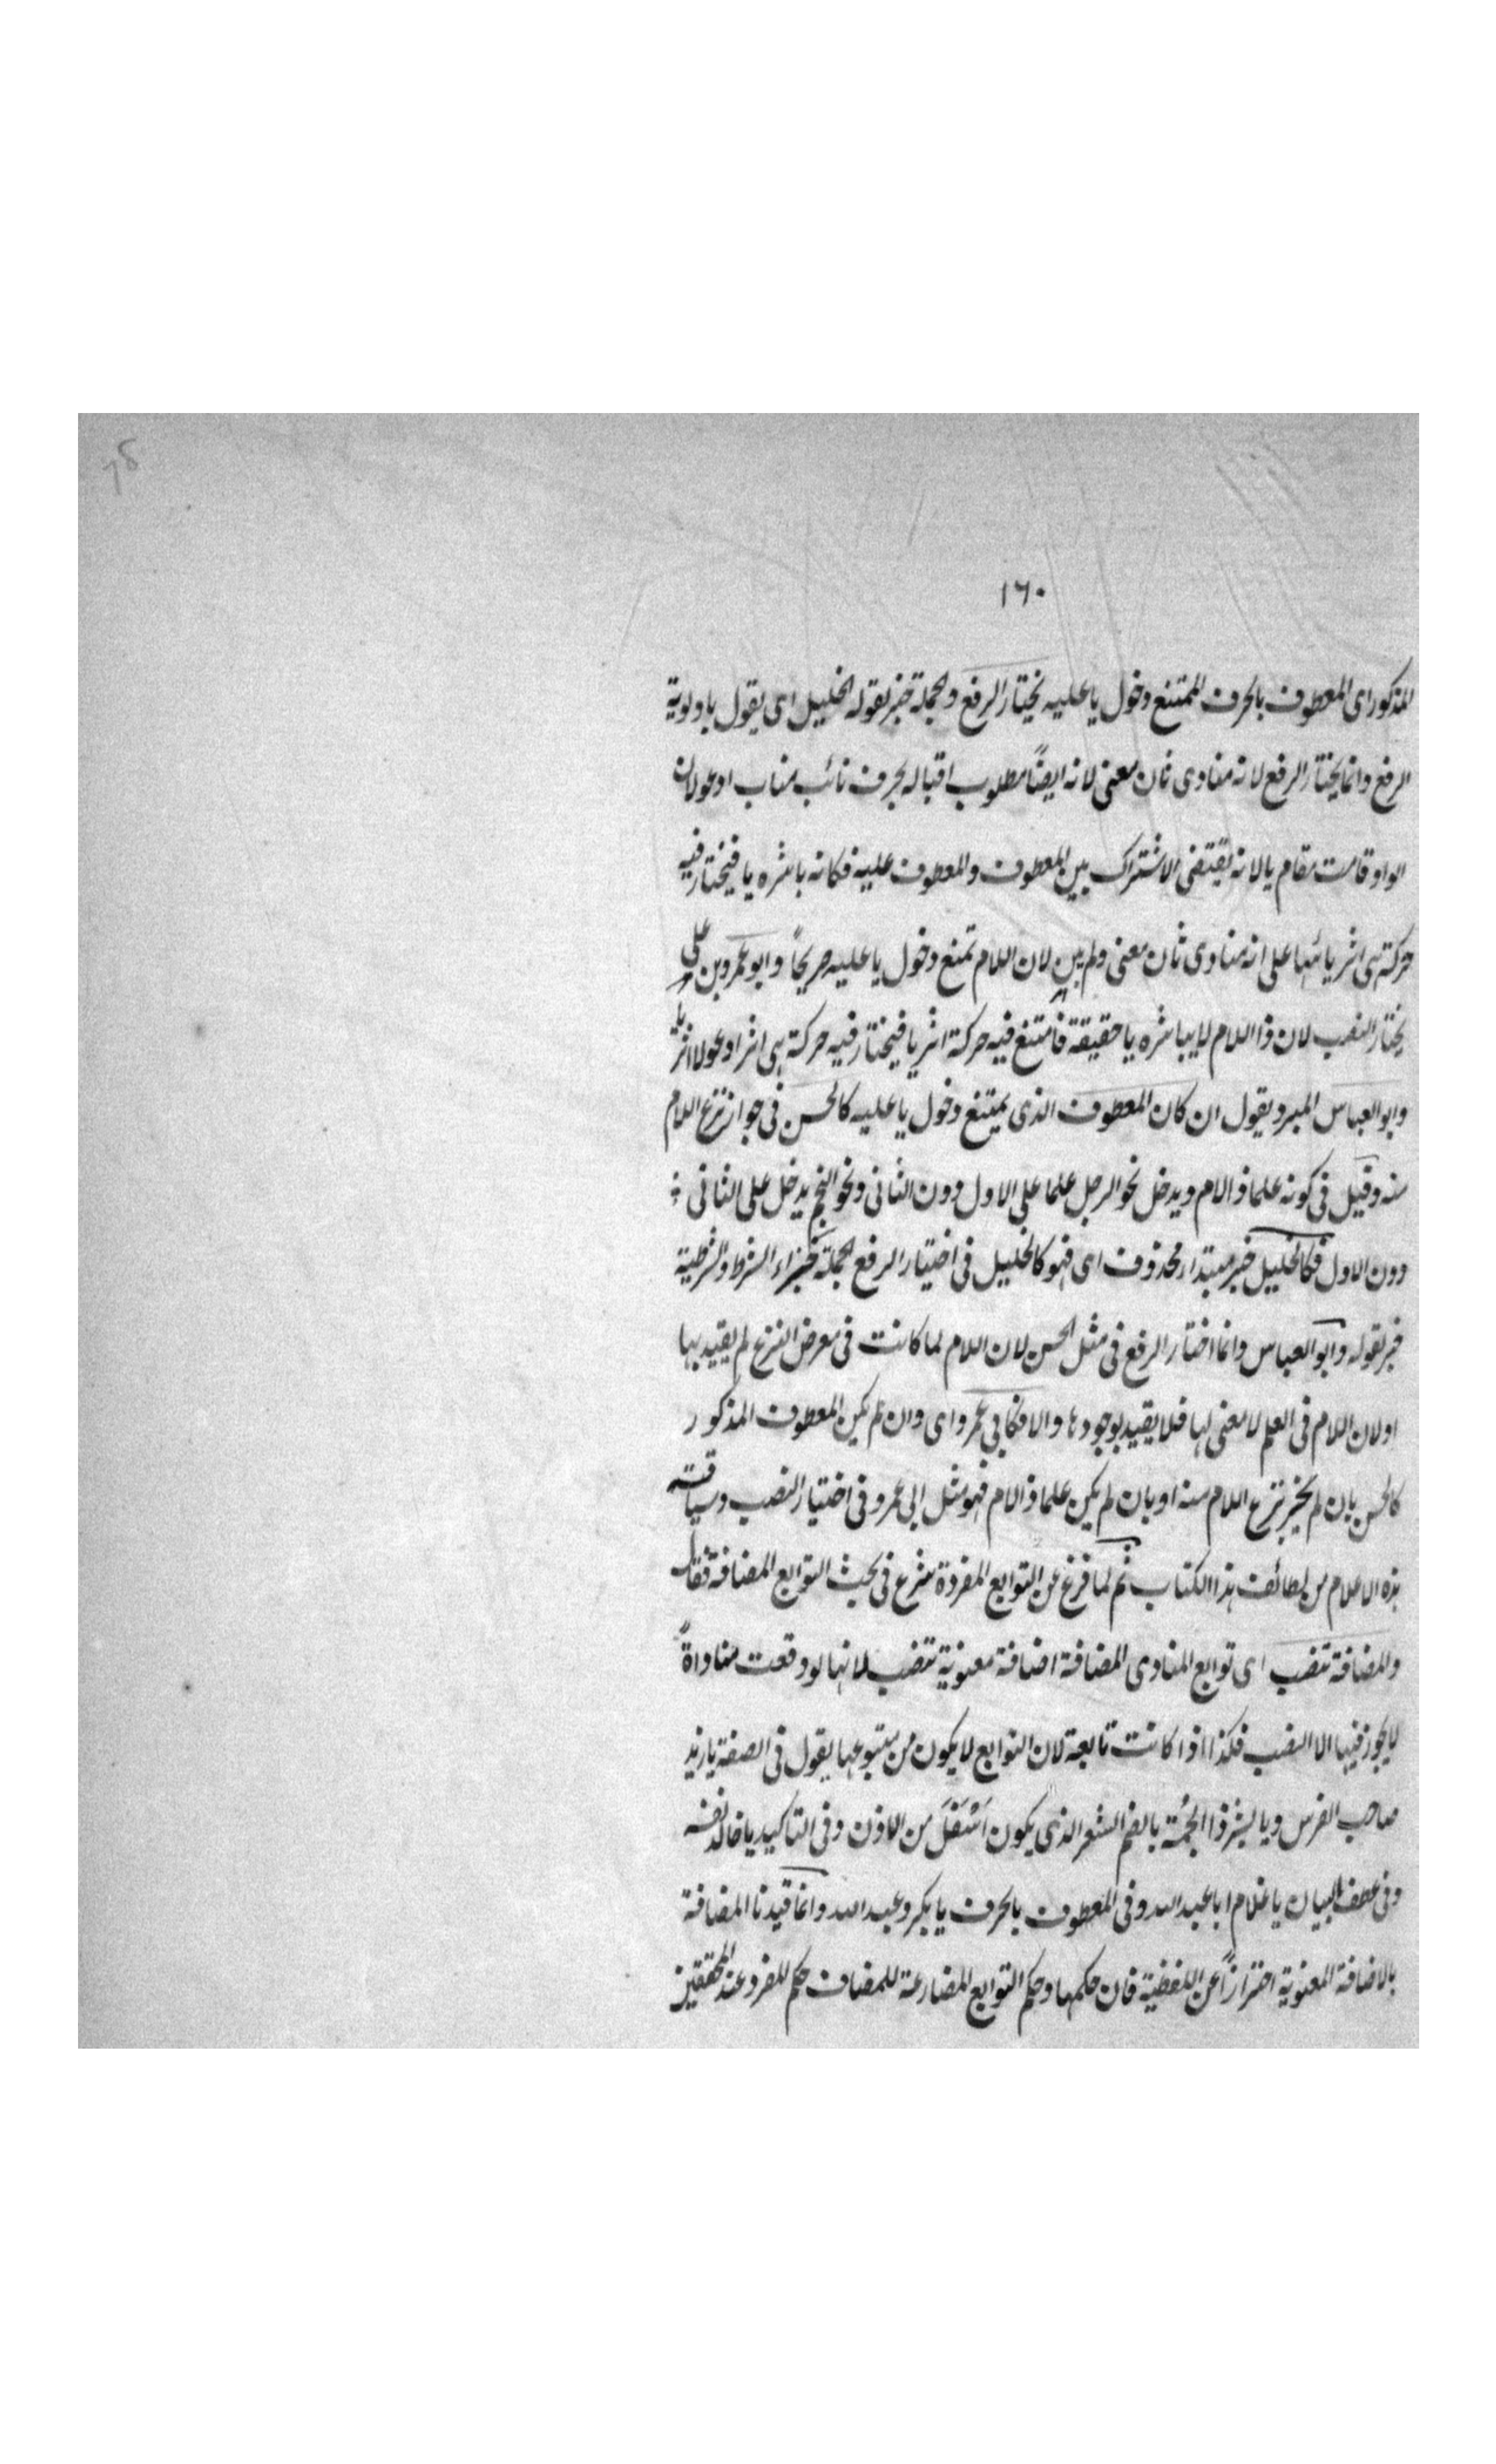 ١٦٠
المذكور اى المعطوف بالحرف الممتنع دخول يا عليه يختار الرفع والجملة خبر لقوله الخليل اى يقول باولوية
الرفع وانما يختار الرفع لانه منادى ثان معنى لانه ايضًا مطلوب اقباله بحرف نائب مناب ادعو لان
الواو قامت مقام يا لانه يقتضى الاشتراك بين المعطوف والمعطوف عليه فكانه باشره يا فيختار فيه
حركة هى اثر يا تنبيها على انه منادى ثان معنى ولم يبن لان اللام تمنع دخول يا عليه صريحًا وابو عمرو بن
يختار النصب لان ذا اللام لا يباشره يا حقيقة فامتنع فيه حركة اثر يا فيختار فيه حركة هى اثر ادعو لا اثر يا
وابو العباس المبرد يقول ان كان المعطوف الذى يمتنع دخول يا عليه كالحسن فى جواز نزع اللام
منه وقيل فى كونه علما ذا لام ويدخل نحو الرجل علما على الاول دون الثانى ونحو النجم يدخل على الثانى
دون الاول فكالخليل خبر مبتدا محذوف اى فهو كالخليل فى اختيار الرفع والجملة جزاء الشرط والشرطية
خبر لقوله وابو العباس وانما اختار الرفع فى مثل الحسن لان اللام لما كانت فى معرض النزع لم يقيد بها
او لان اللام فى العلم لا معنى لها فلا يقيد بوجودها والا فكابى عمرو اى وان لم يكن المعطوف المذكور
كالحسن بان لم يجز نزع اللام منه او بان لم يكن علما ذا لام فهو مثل ابى عمرو فى اختيار النصب وسياقته
هذه الاعلام من لطائف هذا الكتاب ثم لما فرغ عن التوابع المفردة شرع فى بحث التوابع المضافة فقال
والمضافة تنصب اى توابع المنادى المضافة اضافة معنوية تنصب لانها لو وقعت مناداةً
لا يجوز فيها الا النصب فكذا اذا كانت تابعة لان التوابع لا يكون من متبوعها يقول فى الصفة يا زيد
صاحب الفرس ويا بشر ذا الجُمّة بالضم الشعر الذى يكون اَسْفَلَ من الاذن وفى التاكيد يا خالد نفسه
وفى عطف البيان يا غلام ابا عبد الله وفى المعطوف بالحرف يا بكر وعبد الله وانما قيدنا المضافة
بالاضافة المعنوية احترازًا عن اللفظية فان حكمها وحكم التوابع المضارعة للمضاف حكم المفرد عند المحققين